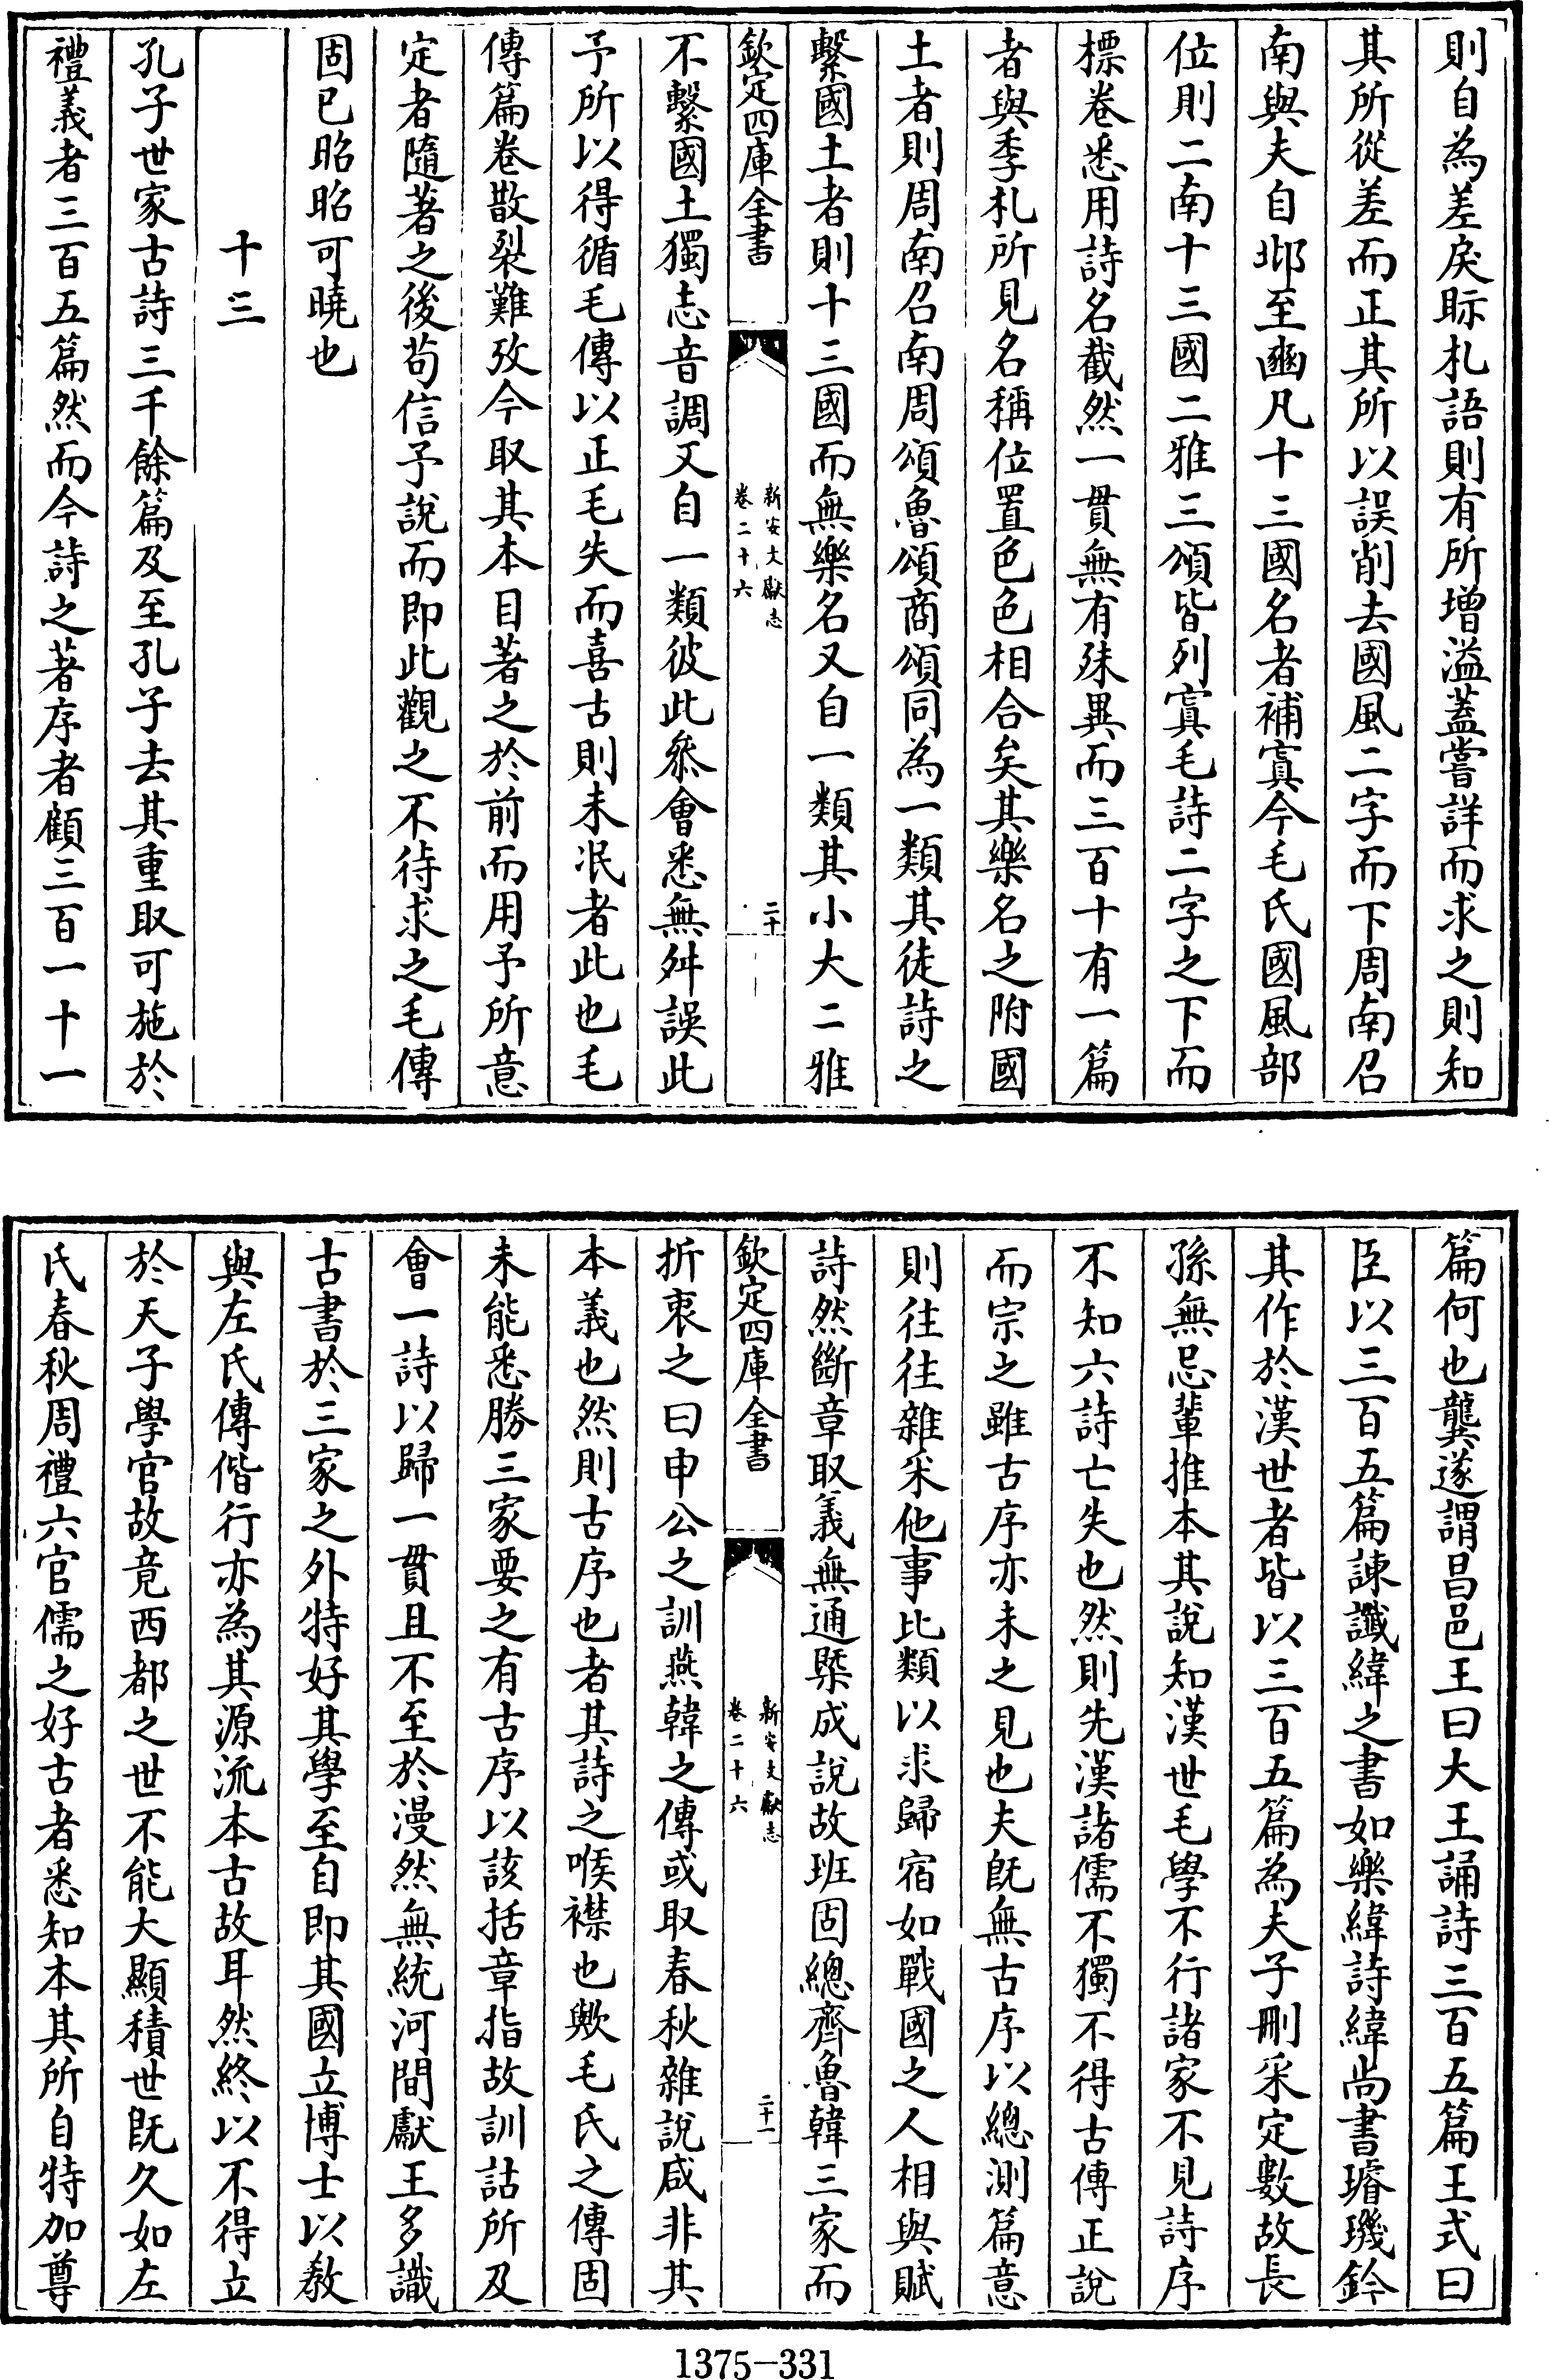 則自為差戾眎札語則有所增溢葢嘗詳而求之則知
其所從差而正其所以誤削去國風二字而下周南召
南與夫自邶至豳凡十三國名者補寘今毛氏國風部
位則二南十三國二雅三頌皆列寘毛詩二字之下而
標卷悉用詩名截然一貫無有殊異而三百十有一篇
者與季札所見名稱位置色色相合矣其樂名之附國
土者則周南召南周頌魯頌商頌同為一類其徒詩之
繫國土者則十三國而無樂名又自一類其小大二雅
欽定四庫全書
新安文獻志
卷二十六
二十
不繫國土獨志音調又自一類彼此叅會悉無舛誤此
予所以得循毛傳以正毛失而喜古則未泯者此也毛
傳篇卷散裂難攷今取其本目著之於前而用予所意
定者隨著之後茍信予說而即此觀之不待求之毛傳
固已昭昭可曉也
十三
孔子世家古詩三千餘篇及至孔子去其重取可施於
禮義者三百五篇然而今詩之著序者顧三百一十一
篇何也龔遂謂昌邑王曰大王誦詩三百五篇王式曰
臣以三百五篇諫讖緯之書如樂緯詩緯尚書璿璣鈐
其作於漢世者皆以三百五篇為夫子刪采定數故長
孫無忌輩推本其說知漢世毛學不行諸家不見詩序
不知六詩亡失也然則先漢諸儒不獨不得古傳正說
而宗之雖古序亦未之見也夫旣無古序以總測篇意
則往往雜采他事比類以求歸宿如戰國之人相與賦
詩然斷章取義無通槩成說故班固總齊魯韓三家而
欽定四庫全書
新安文獻志
卷二十六
二十一
折衷之曰申公之訓燕韓之傳或取春秋雜說咸非其
本義也然則古序也者其詩之喉襟也歟毛氏之傳固
未能悉勝三家要之有古序以該括章指故訓詁所及
會一詩以歸一貫且不至於漫然無統河間獻王多識
古書於三家之外特好其學至自即其國立博士以教
與左氏傳偕行亦為其源流本古故耳然終以不得立
於天子學官故竟西都之世不能大顯積世旣久如左
氏春秋周禮六官儒之好古者悉知本其所自特加尊
1375-331